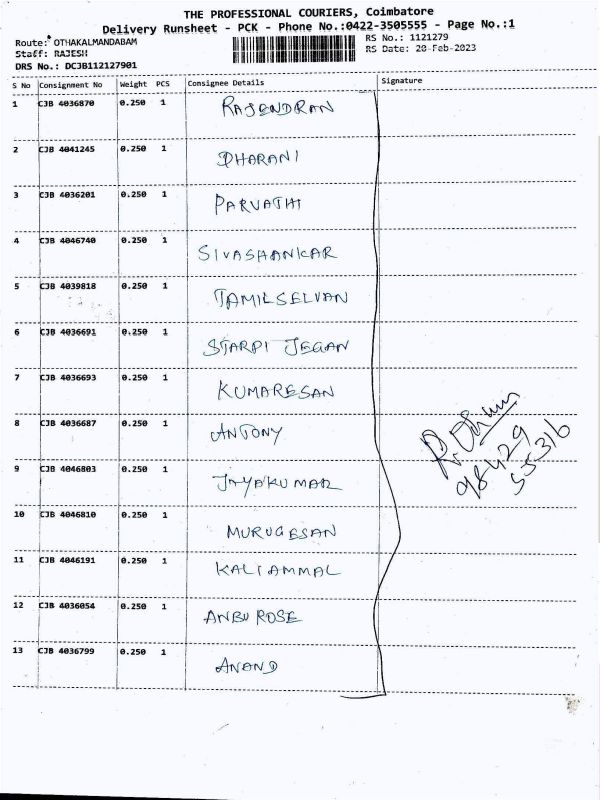 THE PROFESSIONAL COURIERS, Coimbatore
Delivery Runsheet - PCK - Phone No.:0422-3505555 - Page No.:1
Route: OTHAKALMANDABAM RS No.: 1121279
Staff: RAJESH RS Date: 20-Feb-2023
DRS No.: DCJB112127901
S No Consignment No Weight PCS Consignee Details Signature
1 CJB 4036870 0.250 1 RAJENDRAN
2 CJB 4041245 0.250 1 DHARANI
3 CJB 4036201 0.250 1 PARVATHI
4 CJB 4046740 0.250 1 SIVASHANKAR
5 CJB 4039818 0.250 1 TAMILSELVAN
6 CJB 4036691 0.250 1 STARPI JEGAN
7 CJB 4036693 0.250 1 KUMARESAN
8 CJB 4036687 0.250 1 ANTONY
9 CJB 4046803 0.250 1 JAYAKUMAR
10 CJB 4046810 0.250 1 MURUGESAN
11 CJB 4046191 0.250 1 KALIAMMAL
12 CJB 4036054 0.250 1 ANBU ROSE
13 CJB 4036799 0.250 1 ANAND
98429
55316